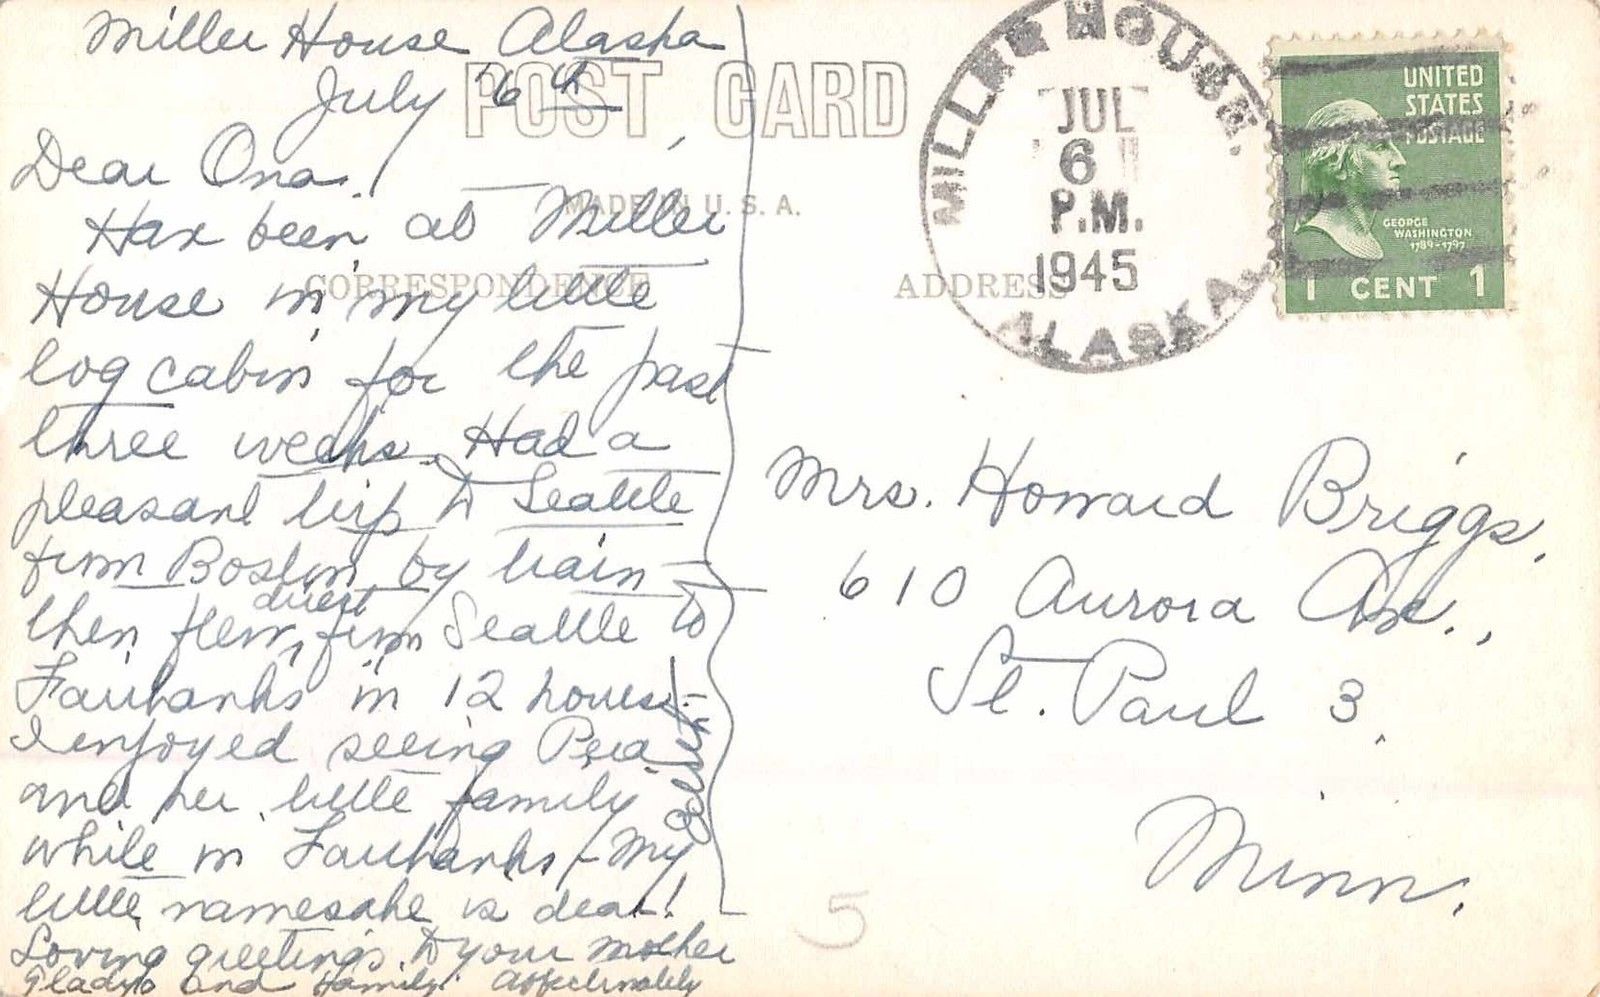 Miller House Alaska
July 6th
POST CARD
MADE IN U.S.A.
CORRESPONDENCE
ADDRESS
Dear Ona,
Have been at Miller
House in my little
log cabin for the past
three weeks. Had a
pleasant trip to Seattle
from Boston by train -
then flew direct from Seattle to
Fairbanks in 12 hours. -
I enjoyed seeing
and her little family
while in Fairbanks - My
little namesake is dear!
Loving greetings to your mother
Gladys and family. Affectionately
MILLER HOUSE.
JUL
6
P.M.
1945
ALASKA
UNITED
STATES
POSTAGE
GEORGE
WASHINGTON
1789-1797
1 CENT 1
Mrs. Howard Briggs,
610 Aurora Ave.,
St. Paul 3,
Minn.
5